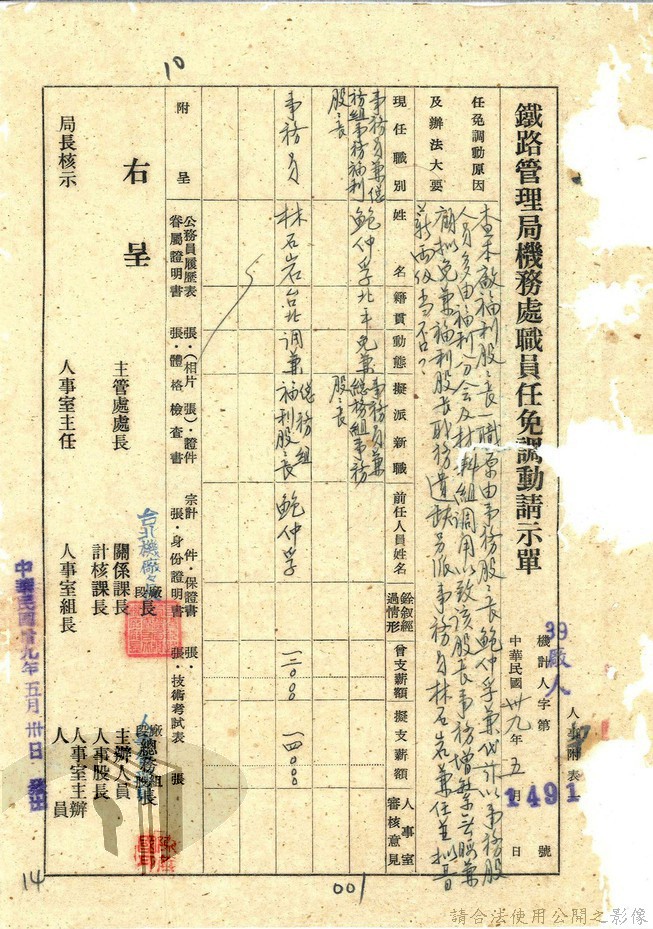 人事附表
鐵路管理局機務處職員任免調動請示單
39
廠人
機計人字第
1491
號
中華民國卅九年五月 日
任免調動原因
及辦法大要
查本廠福利股股長一職原由事務股股長鮑仲孚兼代茲以事務股
人員多由福利分會及材料組調用以致該股長事務增繁無暇兼
顧擬免兼福利股長職務遺缺另派事務員林石岩兼任並擬晉
薪兩級當否?
現任職別
姓名
籍貫
動態
擬派新職
前任人員姓名
銓敘經過情形
曾支薪額
擬支薪額
人事室審核意見
事務員兼總務組事務福利股股長
鮑仲孚
北平
免兼
事務員兼總務組事務股股長
事務員
林石岩
台北
調兼
總務組福利股股長
鮑仲孚
一三〇〇
一四〇〇
附呈
公務員履歷表 張·(相片 張)·證件 宗計 件·保證書 張·
眷屬證明書 張·體格檢查書 張·身份證明書 張·技術考試表 張
右呈
主管處處長
台北機廠
廠段長
關係課長
計核課長
廠段總務組股長
主辦人員
人事股長
人事室主辦人員
局長核示
人事室主任
人事室組長
中華民國卅九年五月卅日發出
10
14
001
請合法使用公開之影像